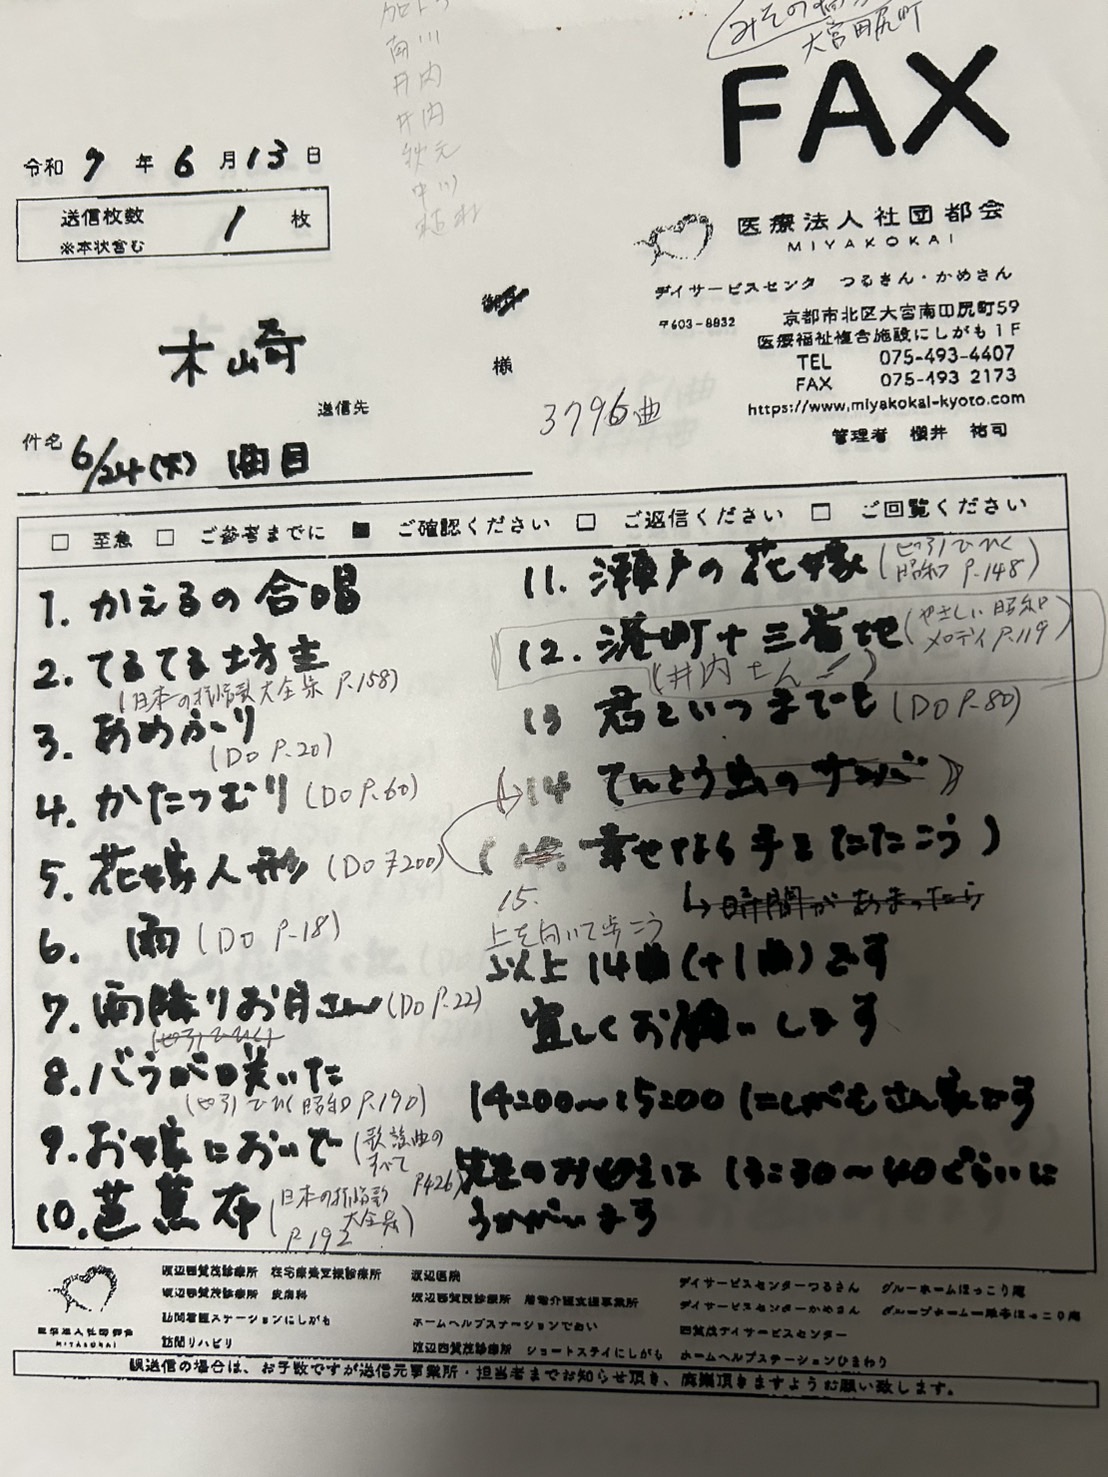 南川
井内
井内
秋元
中川
大宮田尻町
FAX
令和 7 年 6 月 13 日
送信枚数 1 枚
※本状含む
医療法人社団都会
MIYAKOKAI
デイサービスセンタ つるさん・かめさん
〒603-8832 京都市北区大宮南田尻町59
医療福祉複合施設にしがも1F
TEL 075-493-4407
FAX 075-493 2173
https://www.miyakokai-kyoto.com
管理者 櫻井 祐司
木崎 様
送信先
3796曲
件名 6/24(火) 曲目
□ 至急 □ ご参考までに ■ ご確認ください □ ご返信ください □ ご回覧ください
1. かえるの合唱
2. てるてる坊主
(日本の抒情歌大全集 P.158)
3. あめふり
(DO P.20)
4. かたつむり (DO P.60)
5. 花嫁人形 (DO P.200)
6. 雨 (DO P.18)
7. 雨降りお月さん (DO P.22)
(せつ引ひく)
8. バラが咲いた
(せつ引ひく 昭和 P.190)
9. お嫁においで (歌謡曲のすべて P426)
10. 芭蕉布 (日本の抒情歌大全集 P.192)
11. 瀬戸の花嫁 (ひく昭和 P.148)
12. 港町十三番地 (やさしい昭和メロディ P.119)
(井内さん)
13 君といつまでも (DO P.80)
14 てんとう虫のサンバ
(15. 幸せなら手をたたこう)
↳時間があまったら
15.
上を向いて歩こう
以上 14曲(+1曲)です
宜しくお願いします
14:00〜15:00 にしがもさん家です
うかがいます
渡辺西賀茂診療所 在宅療養支援診療所
渡辺西賀茂診療所 皮膚科
訪問看護ステーションにしがも
訪問リハビリ
渡辺医院
渡辺西賀茂診療所 居宅介護支援事業所
ホームヘルプステーションであい
渡辺西賀茂診療所 ショートステイにしがも
デイサービスセンターつるさん グループホームほっこり庵
デイサービスセンターかめさん
西賀茂デイサービスセンター
ホームヘルプステーションひまわり
医療法人社団都会
MIYAKOKAI
誤送信の場合は、お手数ですが送信元事業所・担当者までお知らせ頂き、廃棄頂きますようお願い致します。